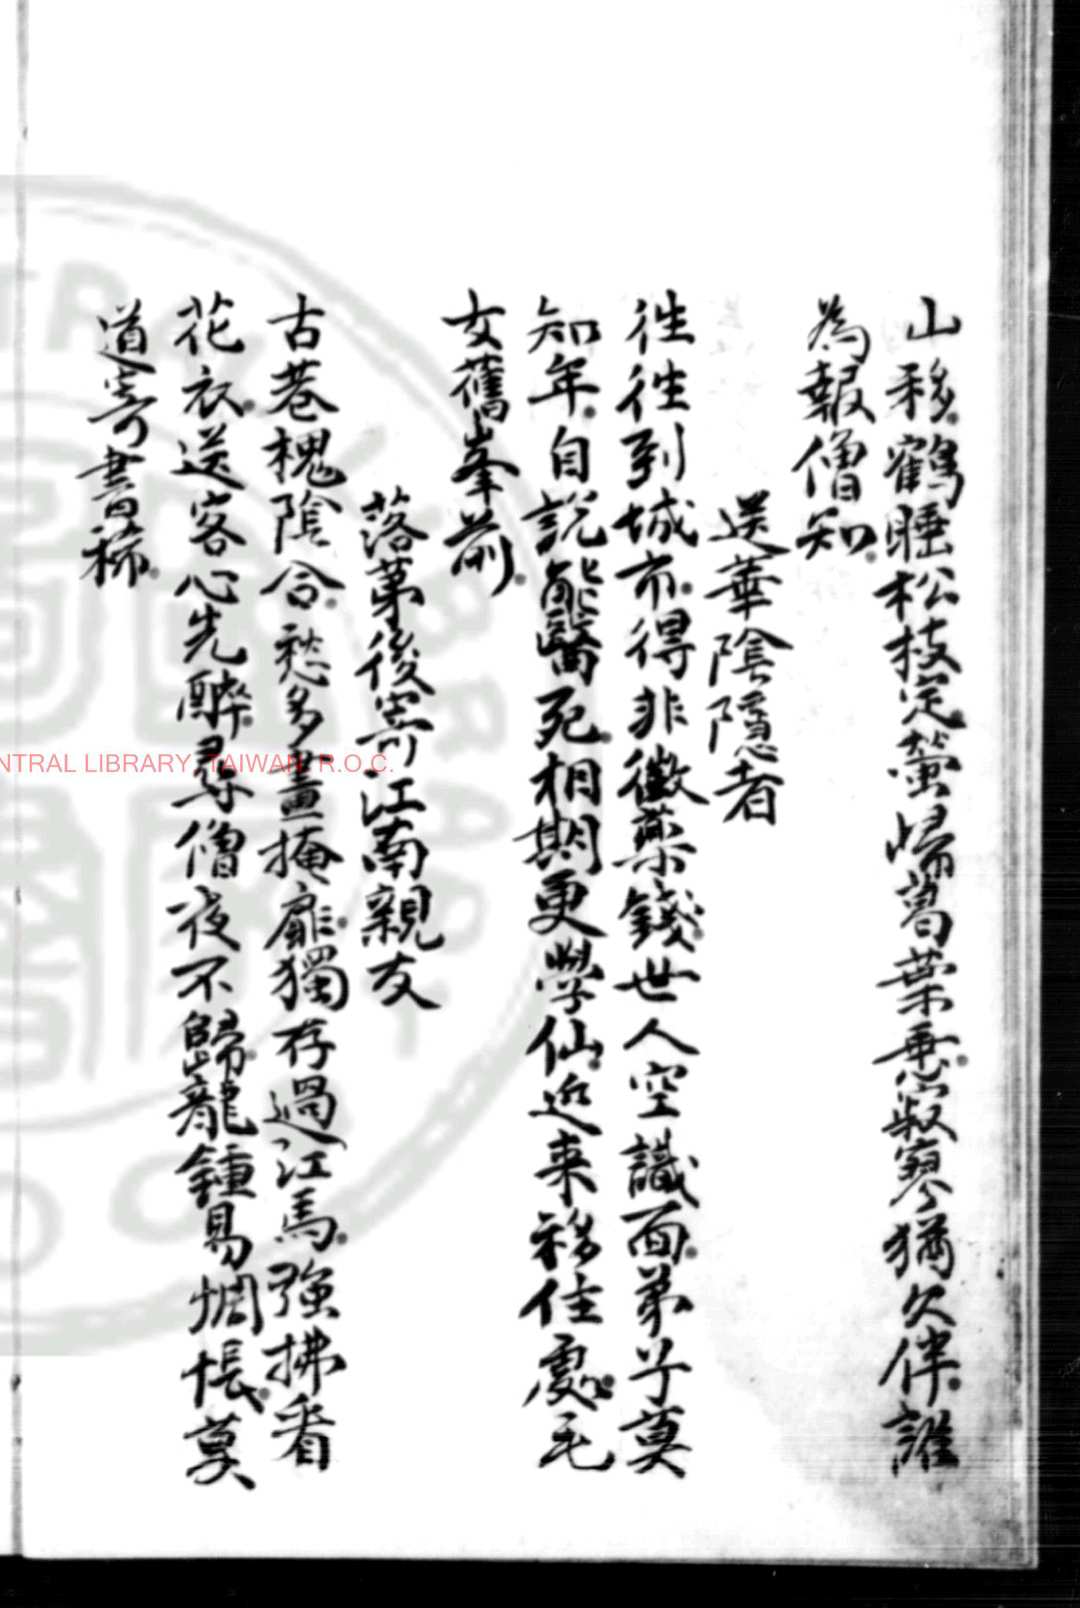 山移鶴睡松枝定螢歸葛葉垂寂寥猶欠伴誰
為報僧知
送華陰隱者
往往到城市得非徵藥錢世人空識面弟子莫
知年自說能醫死相期更學仙近来移住處毛
女舊峯前
落第後寄江南親友
古巷槐陰合愁多晝掩扉獨存過江馬強拂看
花衣送客心先醉尋僧夜不歸龍鍾易惆悵莫
遣寄書稀
NTRAL LIBRARY, TAIWAN R.O.C.